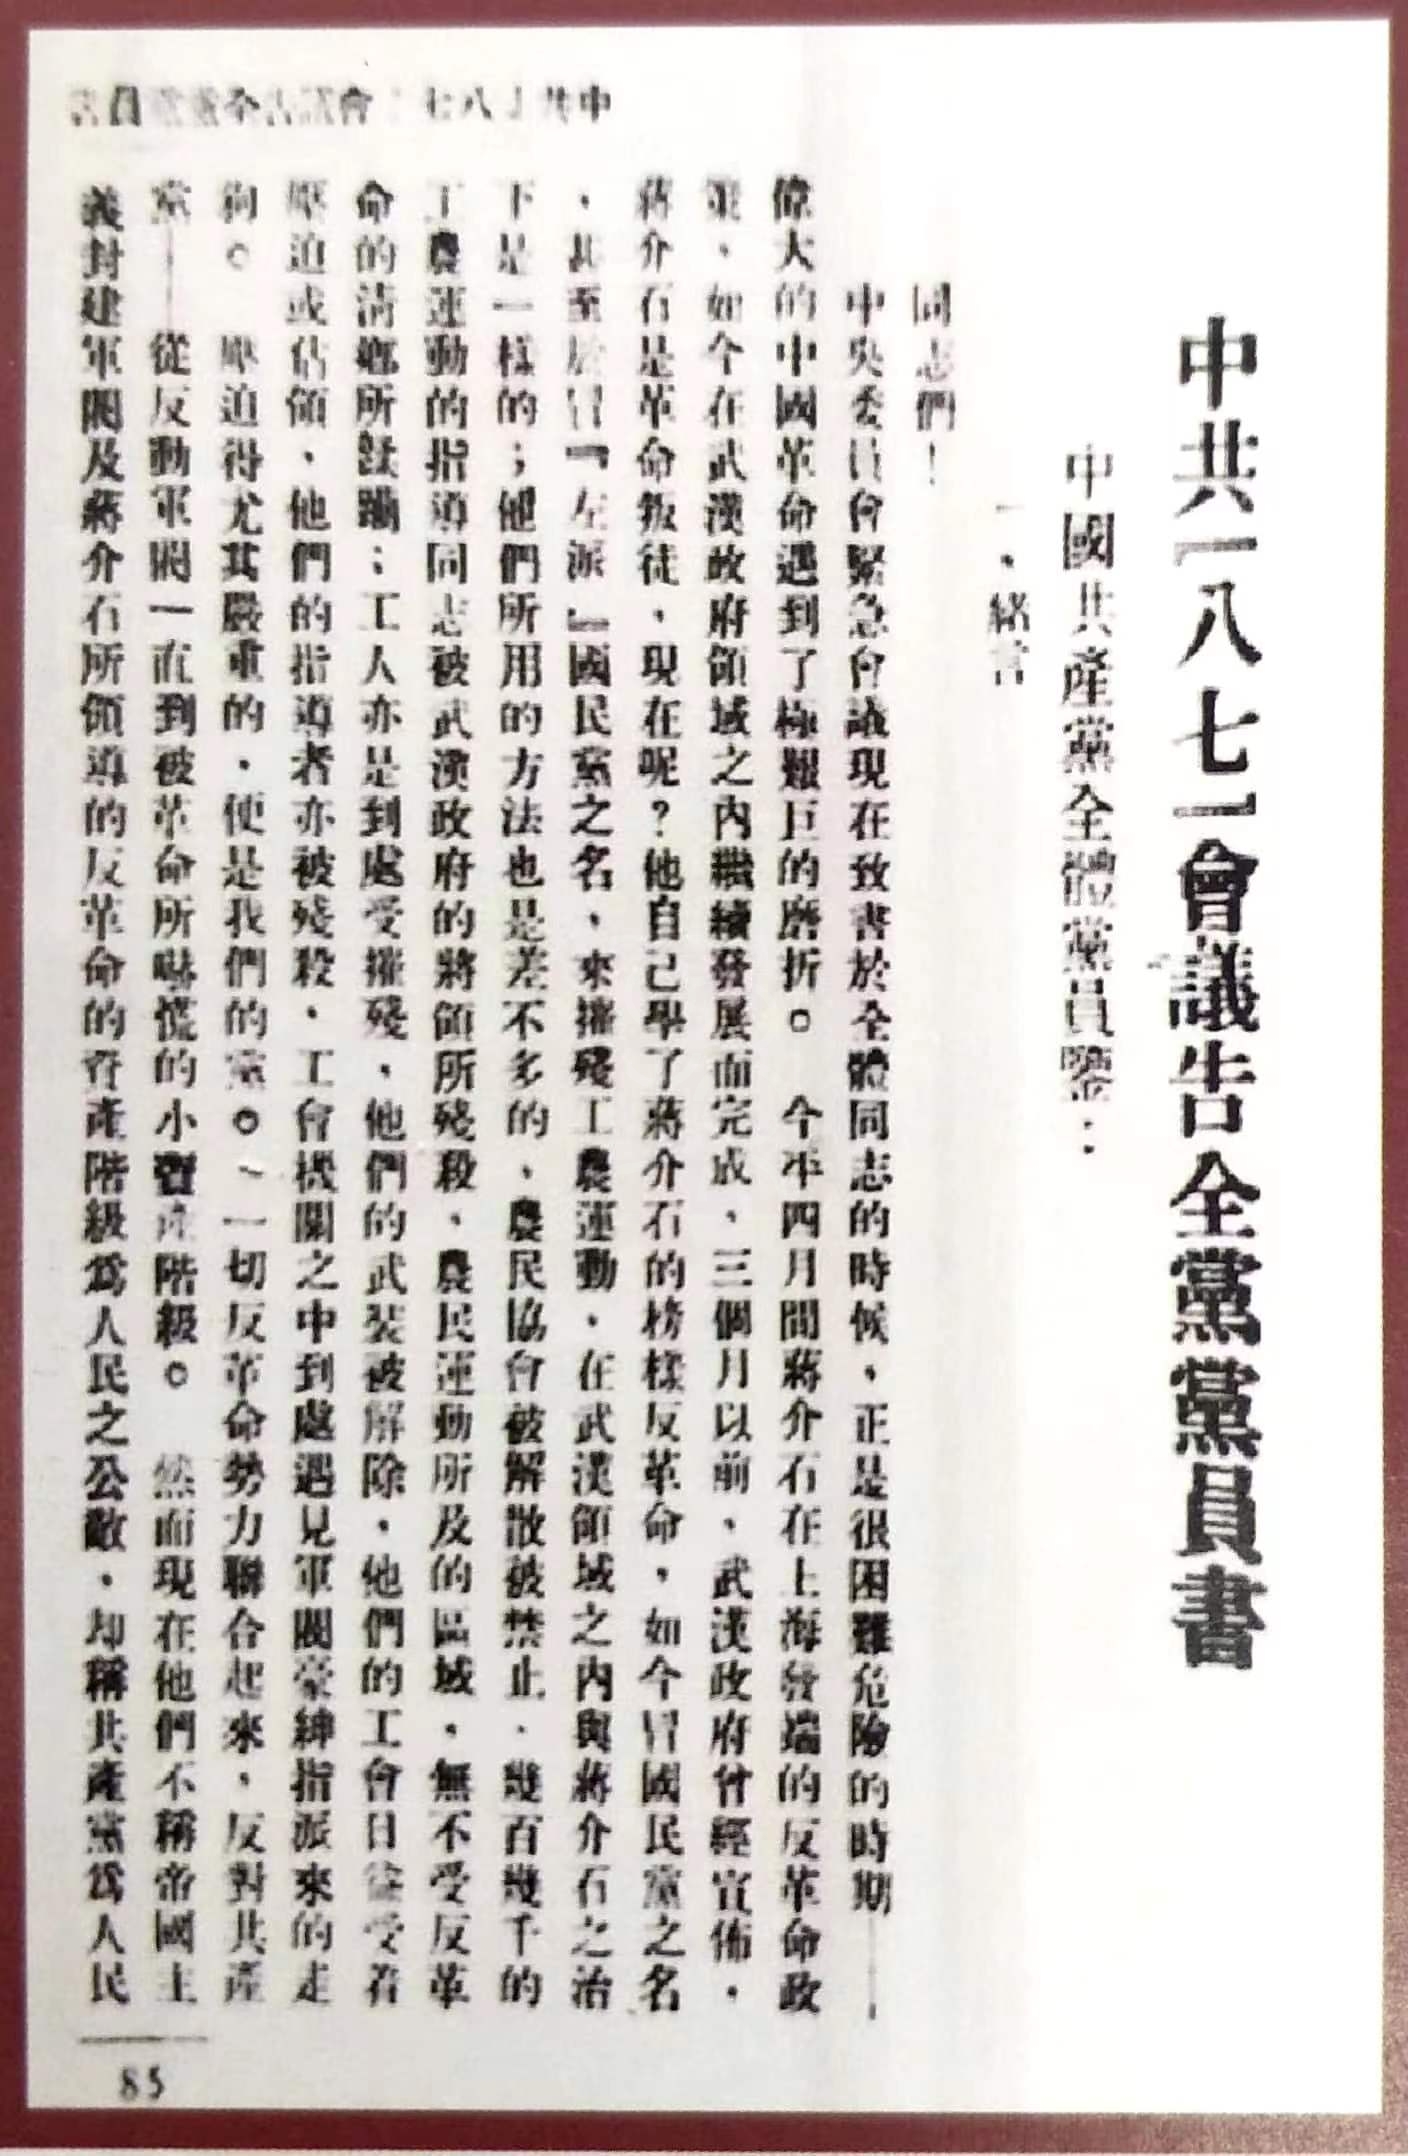 中共「八七」會議告全黨黨員書
中國共產黨全體黨員鑒：
一、緒言
同志們！
中央委員會緊急會議現在致書於全體同志的時候，正是很困難危險的時期——
偉大的中國革命遇到了極艱巨的磨折。　今年四月間蔣介石在上海發端的反革命政
策、如今在武漢政府領域之內繼續發展而完成、三個月以前、武漢政府曾經宣佈，
蔣介石是革命叛徒、現在呢？他自己學了蔣介石的榜樣反革命，如今冒國民黨之名
、甚至於冒『左派』國民黨之名、來摧殘工農運動、在武漢領域之內與蔣介石之治
下是一樣的；他們所用的方法也是差不多的、農民協會被解散被禁止．幾百幾千的
工農運動的指導同志被武漢政府的將領所殘殺、農民運動所及的區域，無不受反革
命的清鄉所蹂躪；工人亦是到處受摧殘、他們的武裝被解除，他們的工會日益受着
壓迫或佔領、他們的指導者亦被殘殺、工會機關之中到處遇見軍閥豪紳指派來的走
狗。　壓迫得尤其嚴重的、便是我們的黨。、一切反革命勢力聯合起來，反對共產
黨——從反動軍閥一直到被革命所嚇慌的小資產階級。　然而現在他們不稱帝國主
義封建軍閥及蔣介石所領導的反革命的資產階級爲人民之公敵，却稱共產黨爲人民
85